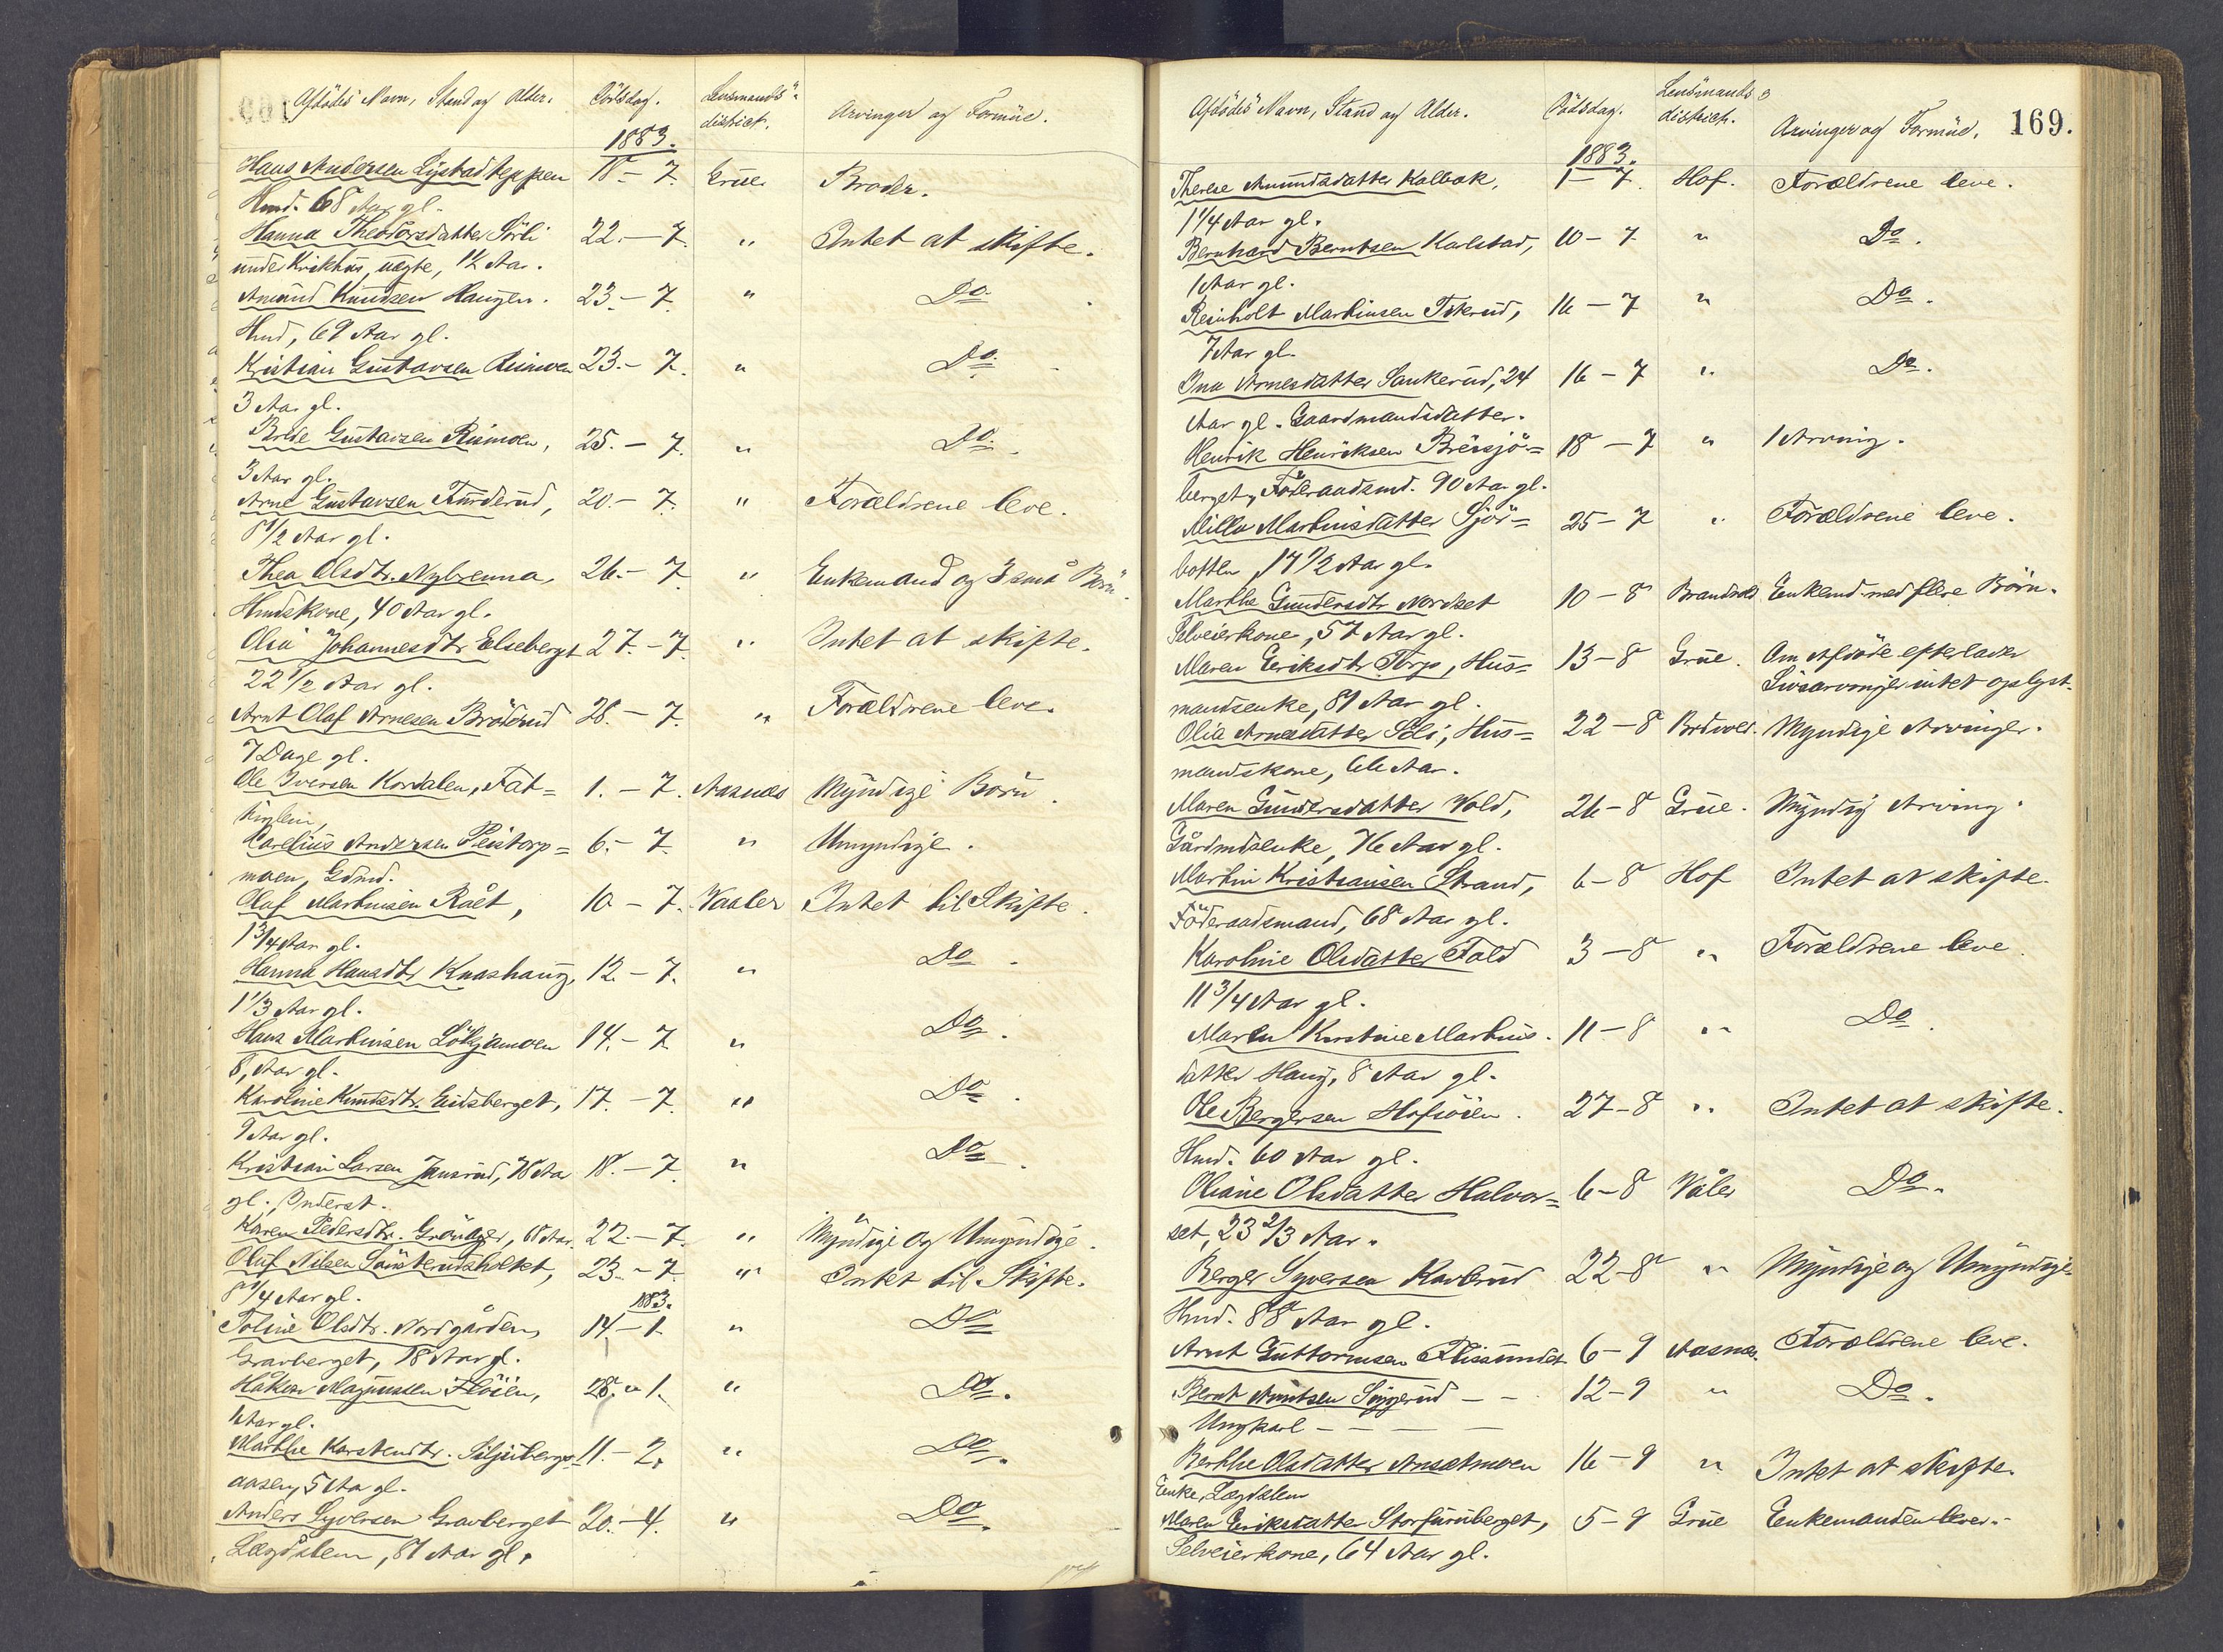 Afdödes Navn, Stand og Alder. Dödsdag. Lensmands- Arvinger og Formue.
district.
1883.
Hans Andersen Lystadkeppen 18 - 7. Grue. Broder.
Hmd. 68 Aar gl.
Hanna Theodorsdatter Sörli 22. - 7. " Intet at skifte.
under Kirkhus, uægte, 1½ Aar.
Amund Knudsen Haugen. 23. - 7. " Do.
Hmd, 69 Aar gl.
Kristian Gustavsen Rismoen 23. - 7. " Do.
3 Aar gl.
Brede Gustavsen Rismoen, 25. - 7. " Do.
3 Aar gl.
Arne Gustavsen Furderud, 20. - 7. " Forældrene leve.
8 1/2 Aar gl.
Thea Olsdtr. Nybrenna, 26. - 7. " Enkemand og 3 små Börn.
Hmdskone, 40 Aar gl.
Olia Johannesdtr Elseberget 27. - 7. " Intet at skifte.
22 1/2 Aar gl.
Arnt Olaf Arnesen Bröderud 28. - 7. " Forældrene leve.
7 Dage gl.
Ole Iversen Kordalen, Fat- 1. - 7. Aasnes Myndige Börn.
tiglem,
Karelius Andersen Peistorp- 6. - 7. " Umyndige.
moen, Gdmd.
Olaf Martinsen Rået, 10 - 7. Vaaler Intet til Skifte.
1 3/4 Aar gl.
Hanna Hansdtr Knashaug, 12. - 7. " Do.
1 1/3 Aar gl.
Hans Martinsen Lökjamoen 14. - 7. " Do.
8, Aar gl.
Karoline Knudsdtr. Eidsberget, 17. - 7. " Do.
9 Aar gl.
Kristian Larsen Jansrud, 78 Aar 18. - 7. " Do.
gl., Inderst.
Karen Pedersdtr. Grönager, 68 Aar. 22. - 7. " Myndige og Umyndige.
Oluf Nilsen Sönsterudsholtet, 23. - 7. " Intet til Skifte.
8 1/4 Aar gl. 1883.
Toline Olsdtr. Nordgården, 14. - 1. " Do
Gravberget, 18 Aar gl.
Håken Magnussen Flöien, 28. " 1. " Do.
1 Aar gl.
Marthe Karstendtr. Siljubergs- 11. - 2. " Do.
aasen, 5 Aar gl.
Anders Syversen Gravberget 20. - 4. " Do.
Lægdslem, 81 Aar gl.
Afdödes Navn, Stand og Alder. Dödsdag. Lensmands district. Arvinger og Formue. 169.
1883.
Therese Amundsdatter Kalbak, 1 - 7. Hof. Forældrene leve.
1 1/4 Aar gl.
Bernhard Berntsen Karlstad, 10 - 7 " Do.
1 Aar gl.
Reinholt Martinsen Tskerud, 16 - 7 " Do.
7 Aar gl.
Ina Arnesdatter Sankerud, 24 16 - 7 " Do.
Aar gl. Gaardmandsdatter.
Henrik Henriksen Bresjö- 18 - 7 " 1 Arving.
berget, Föderaadsmd. 90 Aar gl.
Milla Martinsdatter Sjö- 25 - 7 " Forældrene leve.
botten 17 1/2 Aar gl.
Marthe Gundersdtr Nordset 10 - 8 Brandvold Enkemd med flere Börn.
Selveierkone, 57 Aar gl.
Maren Eriksdtr Torp, Hus- 13 - 8 Grue. Om Afdöde efterlader
mandsenke, 81 Aar gl. Livsarvinger intet oplyst.
Olia Arnesdatter Soli, Hus- 22 - 8 Brdvold. Myndige Arvinger.
mandskone, 66 Aar.
Maren Gundersdatter Vold, 26 - 8 Grue. Myndig Arving.
Gårdmdsenke, 76 Aar gl.
Martin Kristiansen Strand, 6 - 8 Hof Intet at skifte.
Föderaadsmand, 68 Aar gl.
Karoline Olsdatter Fald 3 - 8 " Forældrene leve.
11 3/4 Aar gl.
Maren Kirstine Martins- 11 - 8 " Do.
datter Haug, 8 Aar gl.
Ole Bergersen Hofsöien. 27 - 8 " Intet at skifte.
Hmd. 60 Aar gl.
Oliane Olsdatter Halvor- 6 - 8 Våler Do.
set, 23 2/3 Aar.
Berger Syversen Kavlerud 22 - 8 " Myndige og Umyndige.
Hmd. 88 Aar gl.
Arnt Guttormsen Flissundet 6 - 9 Aasnes. Forældrene leve.
Bernt Arntsen Siggerud - - 12 - 9 " Do.
Ungkarl - - - -
Berthe Olsdatter Ansetmoen 16 - 9 " Intet at skifte.
Enke, Lægdslem
Maren Eriksdatter Storfuruberget, 5 - 9 Grue Enkemanden lever.
Selveierkone, 64 Aar gl.